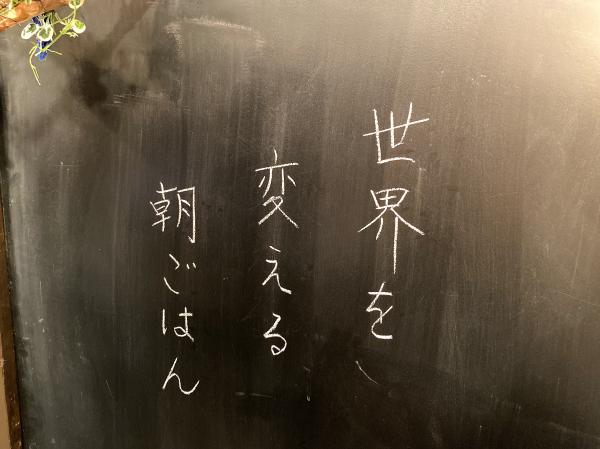 世界を
変える
朝ごはん